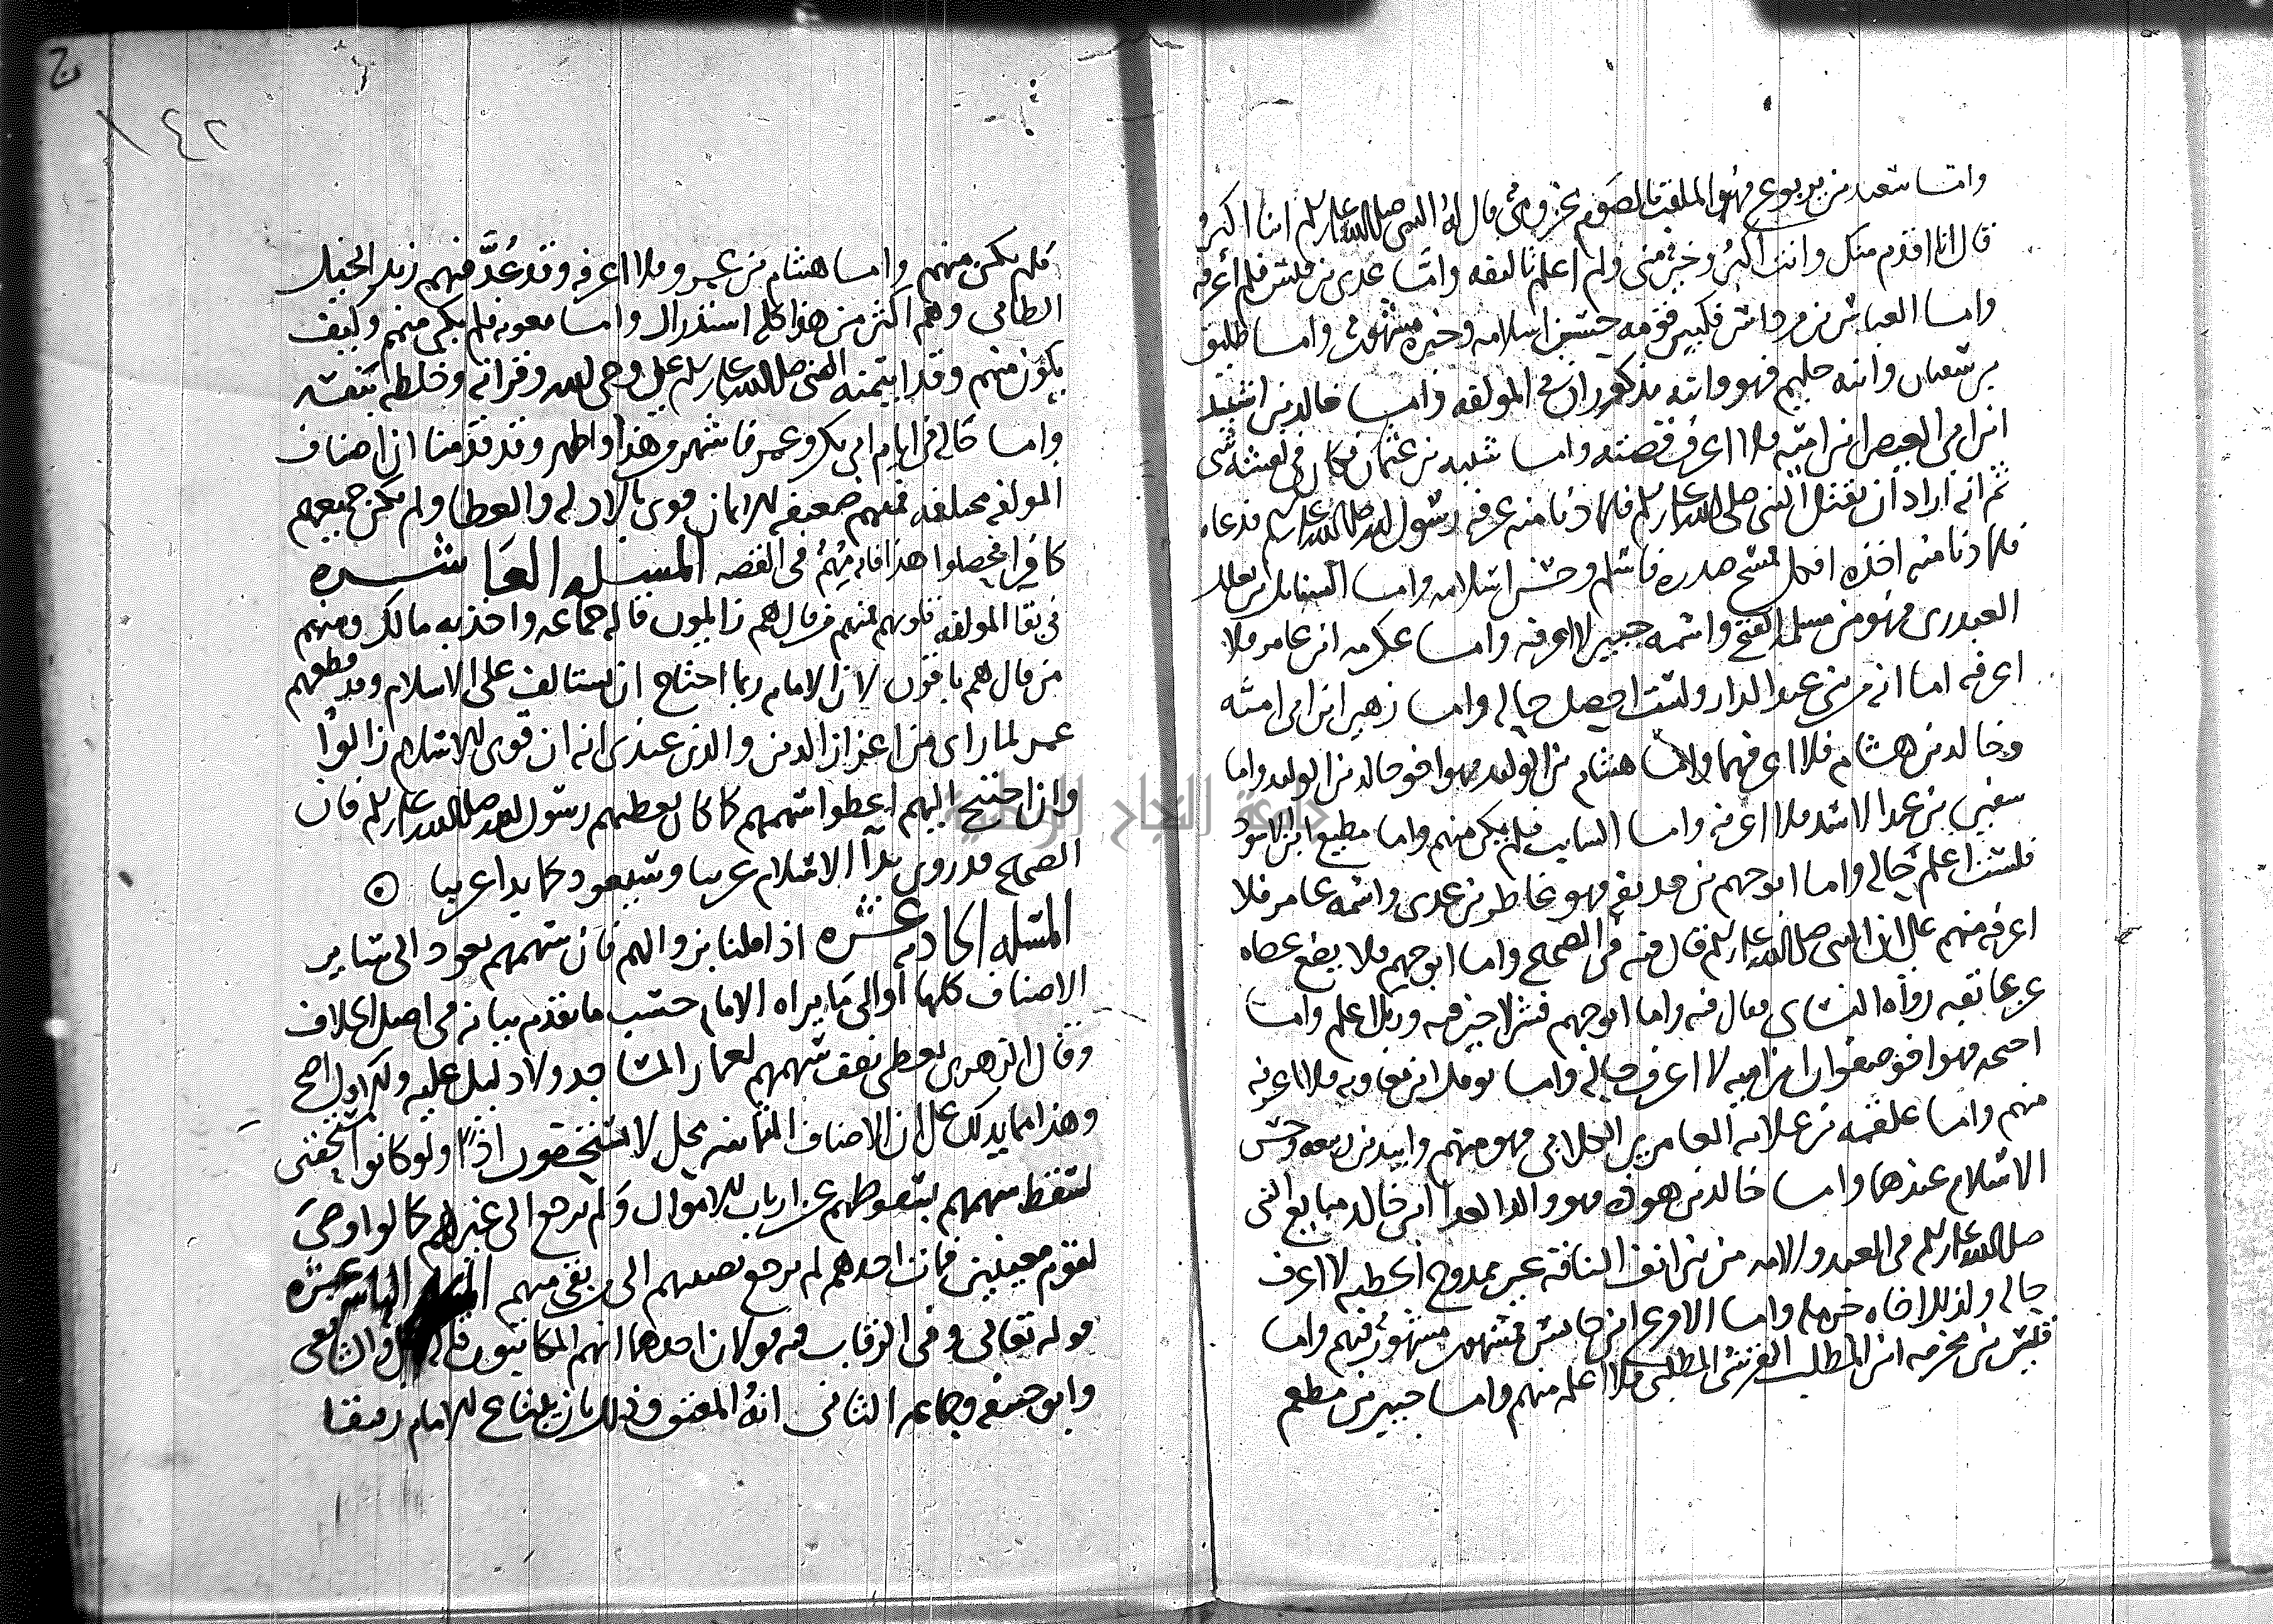 واما سعيد بن يربوع فهو الملقب بالصرم مخزومي قال له النبي صلى الله عليه وسلم اينا اكبر
قال انا اقدم منك وانت اكبر وخير مني ولم اعلم تاليفه واما عدي بن قيس فلم أعرفه
واما العباس بن مرداس فكبير قومه حسن اسلامه وخبره مشهور واما طليق
بن سفيان وابنه حكيم فهو وابنه مذكوران في المولفه واما خالد بن اسيد
ابن ابي العيص ابن اميه فلا اعرف قصته واما شيبه بن عثمن فكان في نفسه شي
ثم انه اراد ان يقتل النبي صلى الله عليه وسلم فلما دنا منه عرفه رسول الله صلى الله عليه وسلم فدعاه
فلما دنا منه اخذه افكل فمسح صدره فاسلم وحسن اسلامه واما السنابل بن بعكك
العبدري فهو من مسلمة الفتح واسمه حبيب لا اعرفه واما عكرمه ابن عامر فلا
اعرفه اما انه من بني عبد الدار ولست احصل حاله واما زهير ابن ابي اميه
وخالد بن هشام فلا اعرفهما واما هشام بن الوليد فهو اخو خالد بن الوليد واما
سفين بن عبد الاسد فلا اعرفه واما السايب فلم يكن منهم واما مطيع ابن الاسود
فلست اعلم حاله واما ابو جهم بن حذيفه فهو بن عدي واسمه عامر فلا
اعرفه منهم على ان النبي صلى الله عليه وسلم قال فيه في الصحيح واما ابو جهم فلا يضع عصاه
عن عاتقه رواه النساي فقال فيه واما ابو جهم فشر لا خير فيه والله اعلم واما
احيحه فهو اخو صفوان ابن اميه لا اعرف حاله واما نوفل ابن معاويه فلا اعرفه
منهم واما علقمه بن علاثه العامري الكلابي فهو منهم ولبيد بن ربيعه وحسن
الاسلام عندهما واما خالد بن هوذه فهو والد العدا ابن خالد مبايع النبي
صلى الله عليه وسلم في العبد والامه من بني انف الناقه غير ممدوح الحطيه لا اعرف
حاله ولا للاخاه حرمله واما الاقرع ابن حابس فمشهور مشهور فيهم واما
قيس بن مخرمه ابن المطلب القرشي المطلبي فلا اعلمه منهم واما جبير بن مطعم
١٤٢
ج
فلم يكن منهم واما هشام بن عمرو فلا اعرفه وقد عُدَّ فيهم زيد الخيل
الطائي وهم اكثر من هذا كله استذرال واما معويه فلم يكن منهم وكيف
يكون منهم وقد ايتمنه النبي صلى الله عليه وسلم على وحي الله وقرانه وخلطه بنفسه
واما حاله في ايام ابي بكر وعمر فاشهر من هذا واظهر وقد قدمنا ان اصناف
المولفه مختلفه فمنهم ضعيف الايمان قوي بالادله والعطا ولم يكن جميعهم
كافرا فحصلوا هذا فانه مُهِمٌ في القصه المسله العاشره
في بقا المولفه قلوبهم فمنهم من قال هم زايلون قاله جماعه واخذ به مالك ومنهم
من قال هم باقون لان الامام ربما احتاج ان يستالف على الاسلام وقد قطعهم
عمر لما راى من اعزاز الدين والذي عندي انه ان قوي الاسلام زالوا
وان احتيج اليهم اعطوا سهمهم كما كان يعطيهم رسول الله صلى الله عليه وسلم فان
الصحيح قد روى بدا الاسلام غريبا وسيعود كما بدا غريبا ۞
المسله الحاديه عشره اذا قلنا بزوالهم فان سهمهم يعود الى ساير
الاصناف كلها او الى ما يراه الامام حسب ما تقدم بيانه في اصل الخلاف
وقال الزهري يعطى نصف سهمهم لعمار المساجد ولا دليل عليه والاول اصح
وهذا مما يدلك على ان الاصناف الثمانيه محل لا مستحقون اذ لو كانوا مستحقين
لسقط سهمهم بسقوطهم عن ارباب الاموال ولم يرجع الى غيرهم كما لو اوصى
لقوم معينين فمات احدهم لم يرجع نصيبهم الى من بقي منهم المسله الثانيه عشره
قوله تعالى وفي الرقاب فيه قولان احدهما انهم المكاتبون قاله والشافعي
وابو حنيفه وجماعه الثاني انه المعتق وذلك بان يبتاع الامام رقيقا
جامعة النجاح الوطنية